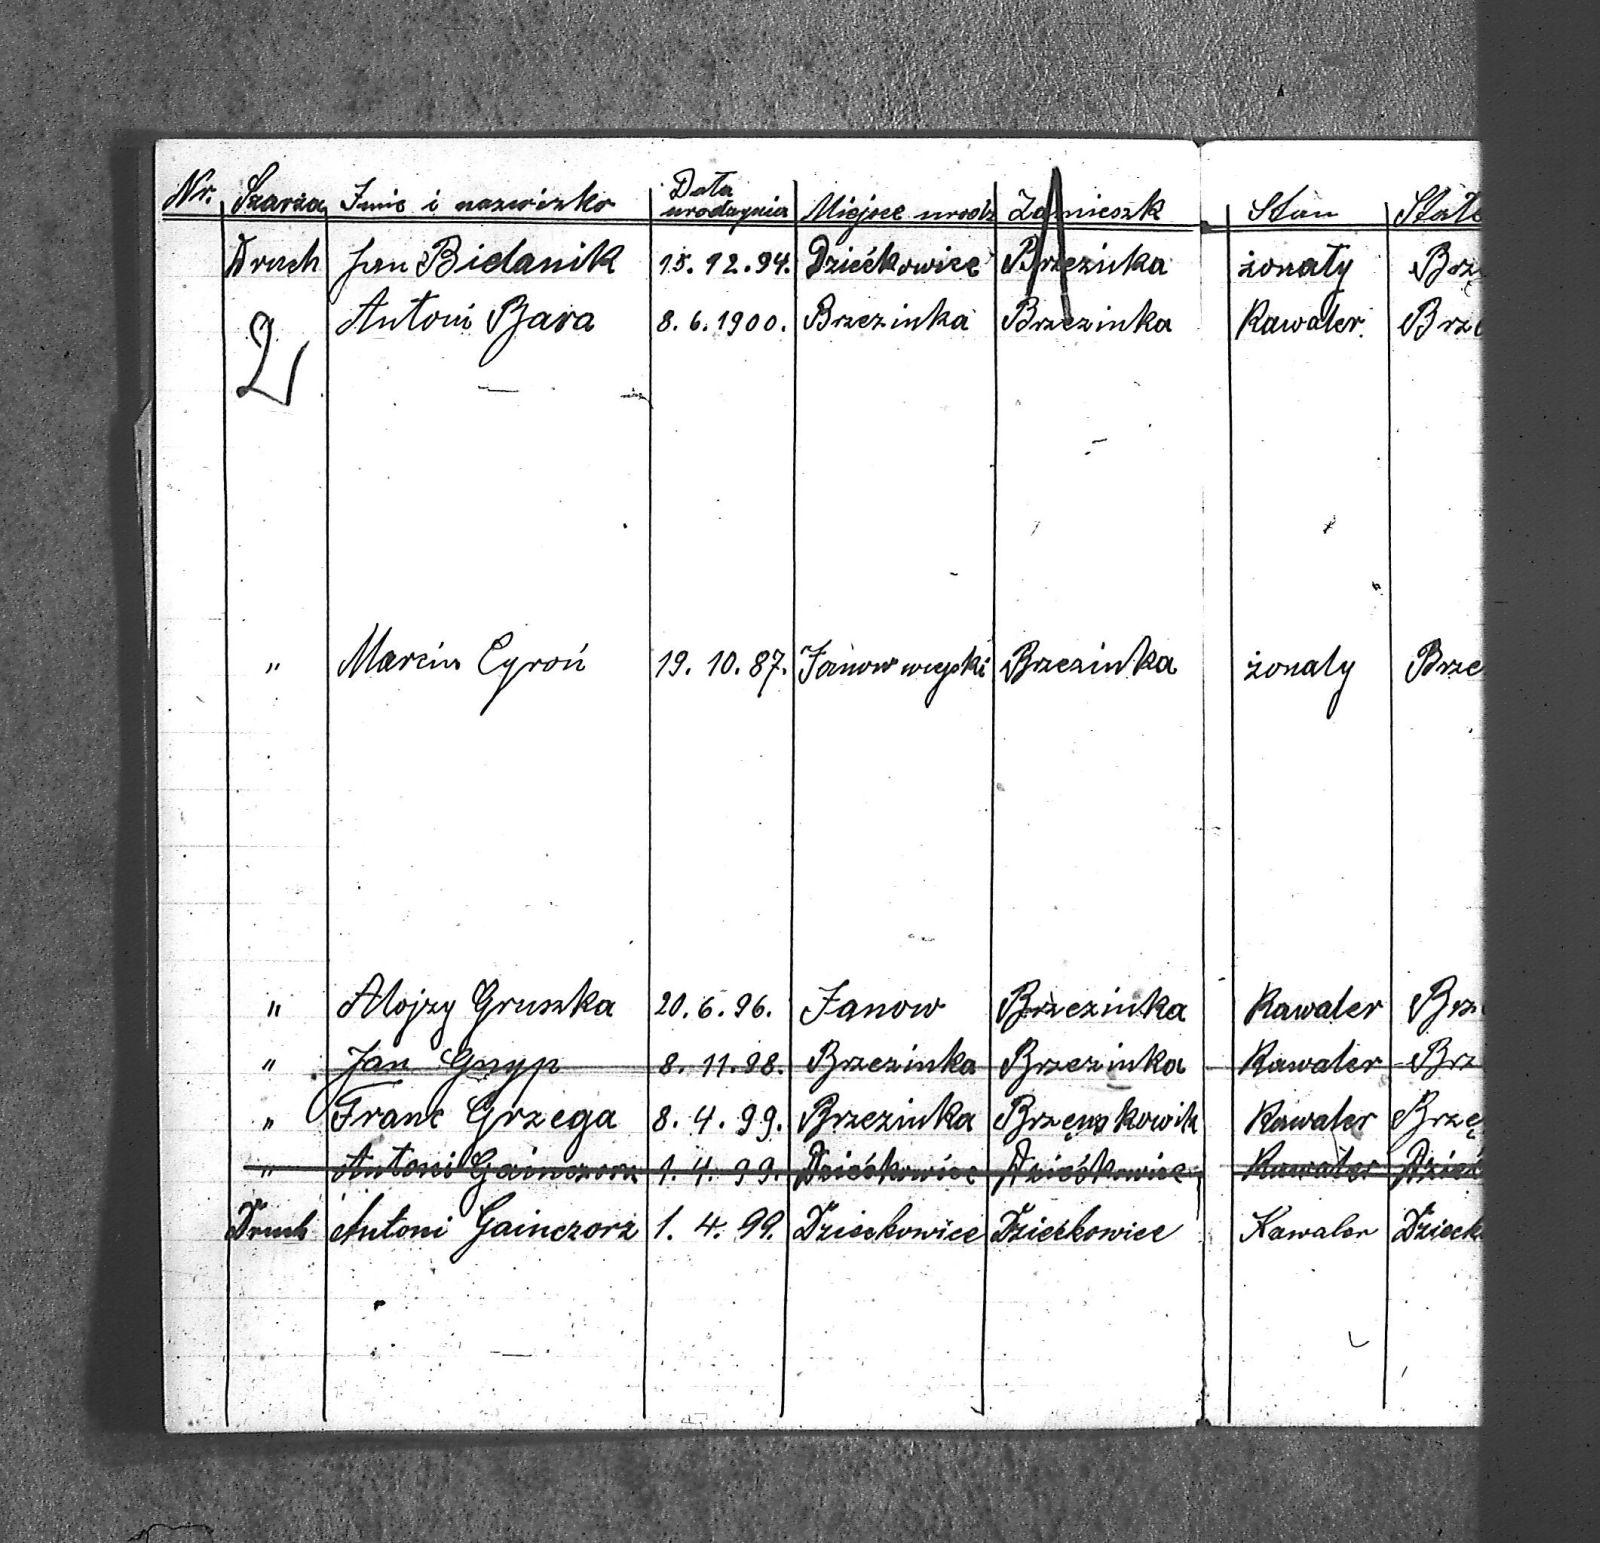 Nr. Szarża Imie i nazwizko Data urodzynia Miejsce urodz Zamieszk Stan
Druch Jan Bielanik 15. 12. 94. Dziećkowice Brzezinka żonaty Brzę
2 Antoni Bara 8. 6. 1900. Brzezinka Brzezinka Kawaler. Brze
" Marcin Cyroń 19. 10. 87. Janow żonaty Brze
" Alojzy Gruszka 20. 6. 96. Janow Brzezinka Kawaler Brz
" Jan Gnyp 8. 11. 98. Brzezinka Brzezinka Kawaler Brz
" Franc Grzega 8. 4. 99. Brzezinka Kawaler Brzę
" Antoni Gainczorz 1. 4. 99. Dziećkowice Dziećkowice Kawaler Dzieć
Druh Antoni Gainczorz 1. 4. 99. Dzieckowice Dziećkowice Kawaler Dzieck